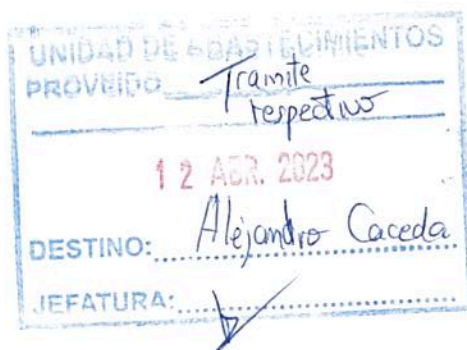 UNIDAD DE ABASTECIMIENTOS
PROVEIDO Tramite
respectivo
12 ABR. 2023
DESTINO: Alejandro Caceda
JEFATURA: